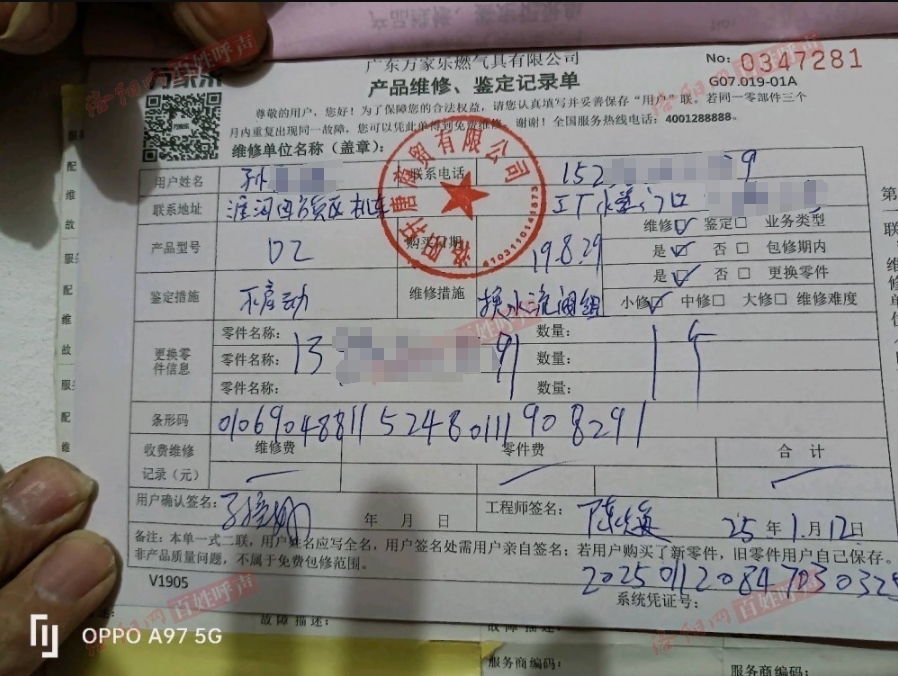 万家乐
广东万家乐燃气具有限公司
产品维修、鉴定记录单
No: 0347281
G07.019-01A
尊敬的用户，您好！为了保障您的合法权益，请您认真填写并妥善保存“用户”联。若同一零部件三个
月内重复出现同一故障，您可以凭此单得到免费维修。谢谢！全国服务热线电话：4001288888。
维修单位名称（盖章）：
用户姓名 孙 联系电话 152 9
联系地址 涯河回族区 机车工厂 门口
产品型号 DZ 购买日期 19.8.29
维修☑ 鉴定☐ 业务类型
是☑ 否☐ 包修期内
是☑ 否☐ 更换零件
小修☑ 中修☐ 大修☐ 维修难度
鉴定措施 不启动 维修措施 换水流阀组
更换零件信息
零件名称： 数量：
零件名称： 13 91 数量： 1个
零件名称： 数量：
条形码 0106904881152480111908291
收费维修记录（元） 维修费 零件费 合计
用户确认签名： 年 月 日 工程师签名： 25年1月12日
备注：本单一式二联，用户姓名应写全名，用户签名处需用户亲自签名；若用户购买了新零件，旧零件用户自己保存。
非产品质量问题，不属于免费包修范围。
V1905
系统凭证号： 202501120847030325
洛阳 唐商贸有限公司
4103110161873
洛阳网 百姓呼声
OPPO A97 5G
故障描述：
服务商编码：
服务商编码：